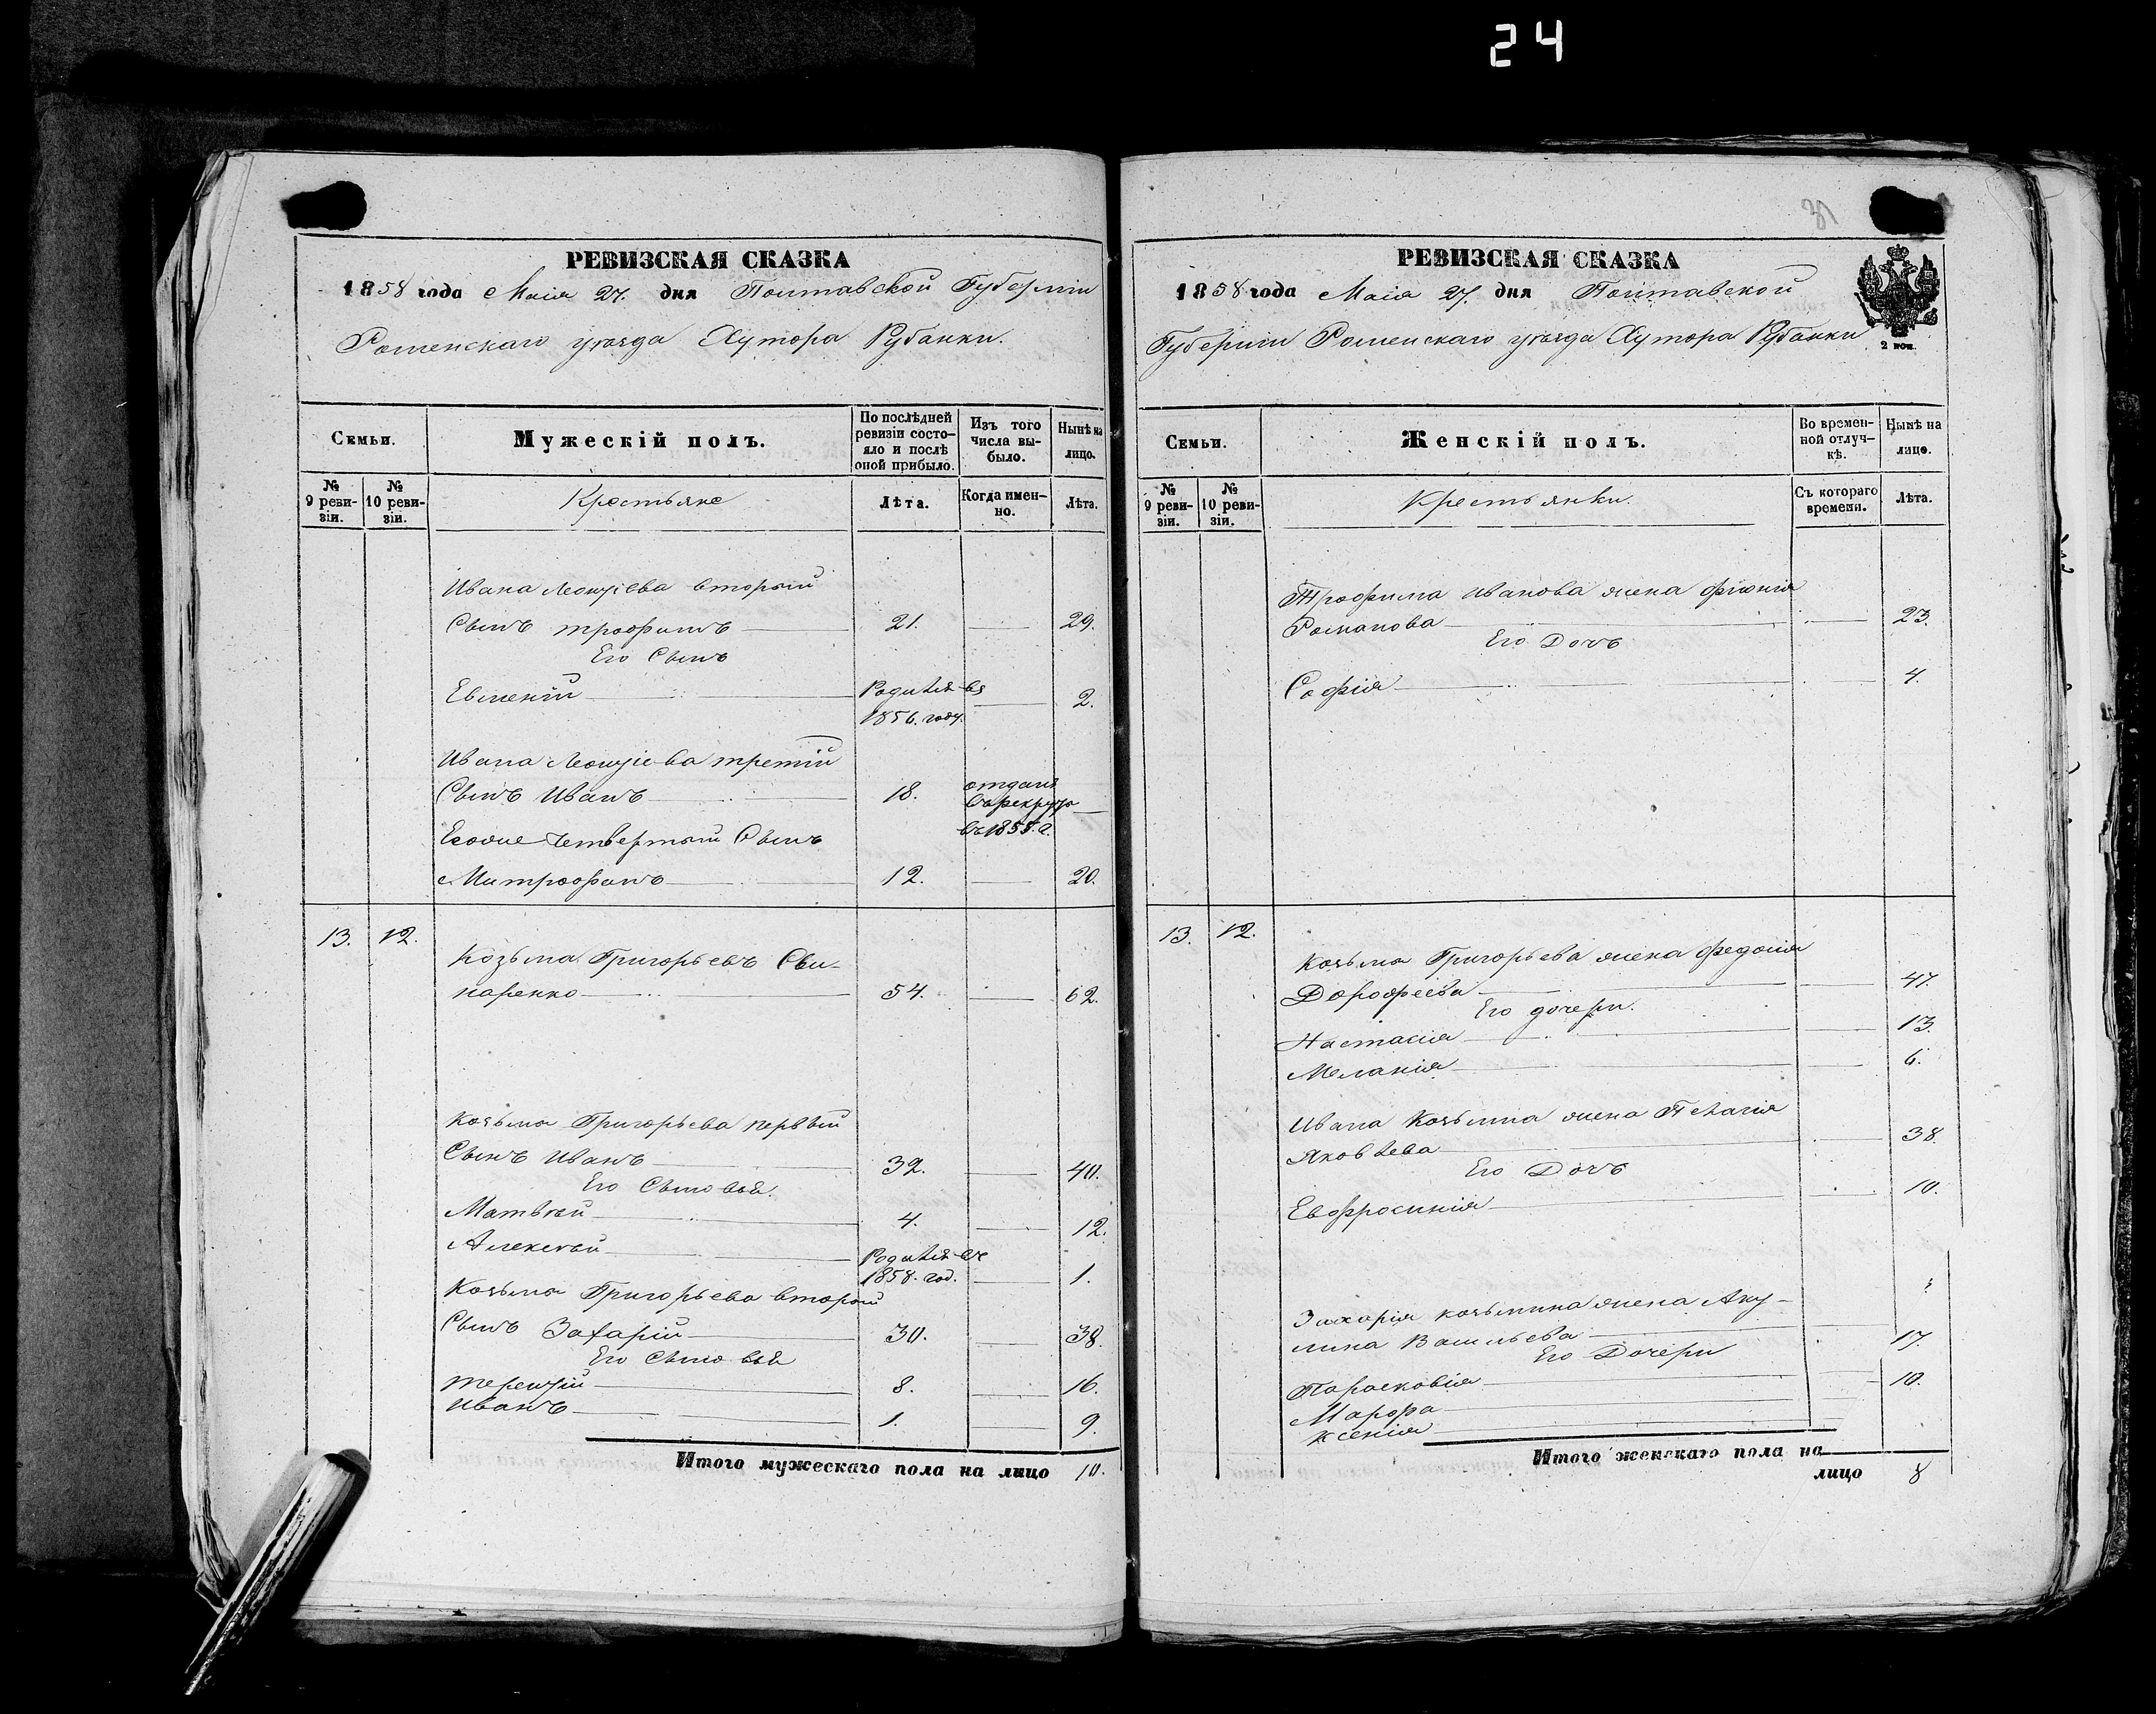 24
РЕВИЗСКАЯ СКАЗКА
1858 года Маія 27. дня Полтавской Губерніи
Роменскаго уѣзда Хутора Рубанки.
Семьи.
Мужескій полъ.
По послѣдней ревизіи состо-яло и послѣ оной прибыло.
Изъ того числа вы-было.
Нынѣ на лицо.
№ 9 реви-зіи.
№ 10 реви-зіи.
Крестьяне
Лѣта.
Когда имен-но.
Лѣта.
Ивана Леонтіева вторый
Сынъ трофимъ 21. 29.
Его Сынъ
Евменій Родился въ 2.
1856. году.
Ивана Леонтіева третій
Сынъ Иванъ 18. отданъ
въ рекруты
въ 1855. г.
Егоже четвертый Сынъ
Митрофанъ 12. 20.
13. 12.
Козьма Григорьевъ Сви-
наренко 54. 62.
Козьмы Григорьева первый
Сынъ Иванъ 32. 40.
Его Сыновья.
Матвѣй 4. 12.
Алексѣй Родился въ
1858. год. 1.
Козьмы Григорьева второй
Сынъ Захарій 30. 38.
Его Сыновья
терентій 8. 16.
Иванъ 1. 9.
Итого мужескаго пола на лицо 10.
31
РЕВИЗСКАЯ СКАЗКА
1858 года Маія 27. дня Полтавской
Губерніи Роменскаго уѣзда Хутора Рубанки
2 коп.
Семьи.
Женскій полъ.
Во времен-ной отлуч-кѣ.
Нынѣ на лицо.
№ 9 реви-зіи.
№ 10 реви-зіи.
Крестьянки.
Съ котораго времени.
Лѣта.
Трофима Иванова жена
Романова 23.
Его Дочь
Софія 4.
13. 12.
Козьмы Григорьева жена Федосія
Дорофеева 47.
Его дочери.
Настасія 13.
Меланія 6.
Ивана Козьмина жена Пелагія
Яковлева 38.
Его Дочь
Евфросинія 10.
Захарія козьмина жена Аку-
лина Васильева 17.
Его Дочери
Парасковія 10.
Марфа
Ксенія
Итого женскаго пола на
лицо 8